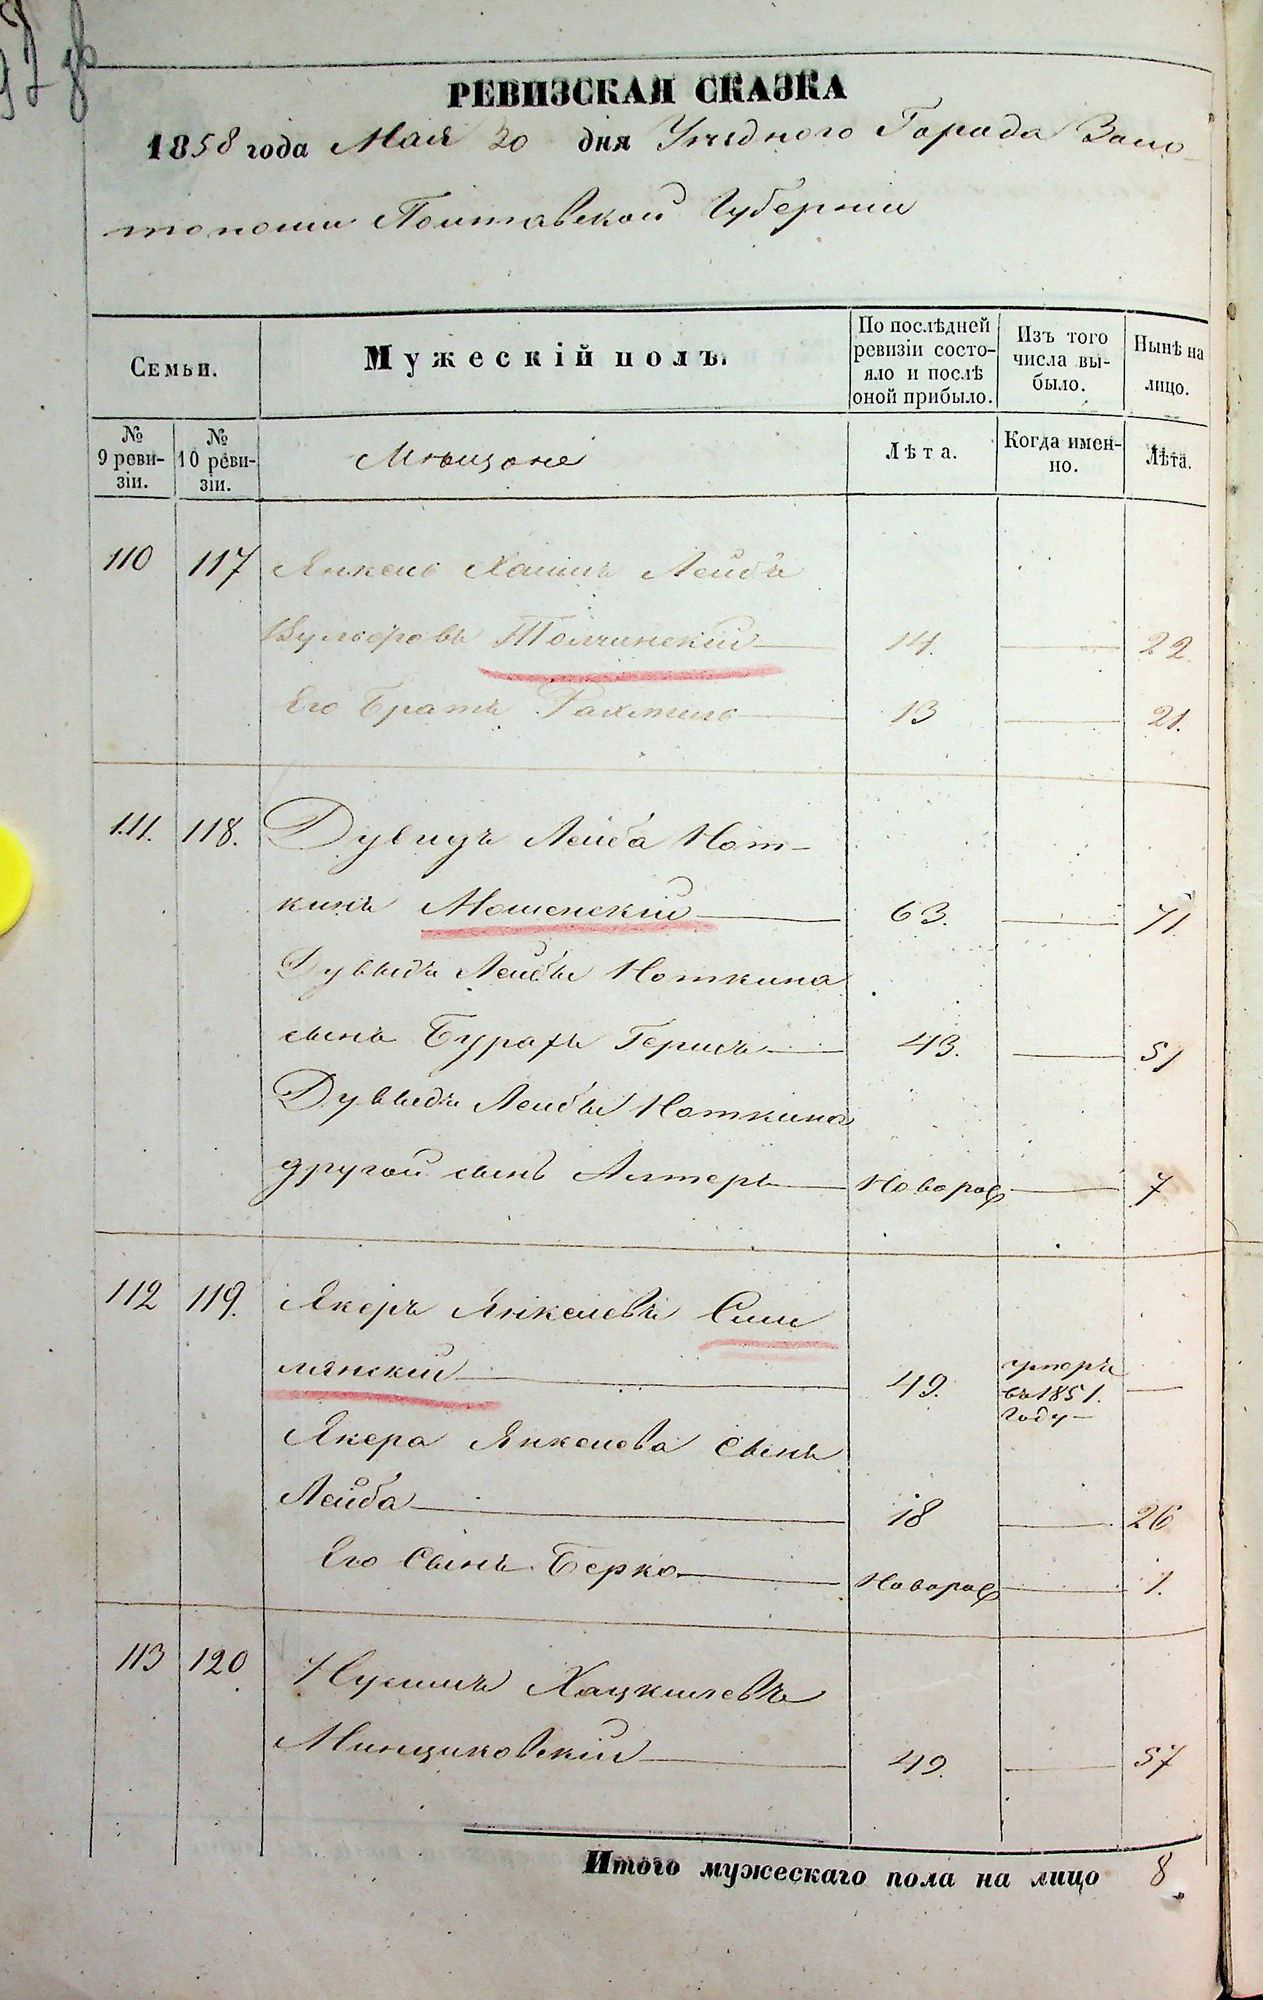 РЕВИЗСКАЯ СКАЗКА
1858 года Мая 20 дня Уѣзднаго Города Золо-
тоноши Полтавской Губерніи
Семьи.
Мужескій полъ.
По послѣдней ревизіи состо-
яло и послѣ оной прибыло.
Изъ того числа вы-
было.
Нынѣ на лицо.
№ 9 реви-
зіи.
№ 10 реви-
зіи.
Мѣщане
Лѣта.
Когда имен-
но.
Лѣта.
110 117 Янкель Хаимъ Лейбъ
Вульфовъ Толчинскій 14. 22
Его Братъ Рахмиль 13 21.
111. 118. Дувидъ Лейба Нот-
кинъ Мошенскій 63. 71.
Дувыдъ Лейбы Ноткина
сынъ Бурохъ Гершъ 43. 51
Дувыдъ Лейбы Ноткина
другой сынъ Алтеръ Новорож 7
112 119. Якеръ Янкелевъ Сми
лянскій 49. умеръ
въ 1851.
году
Якера Янкелева сынъ
Лейба 18 26
Его Сынъ Берко Новорож 1.
113 120 Нусимъ Хацкилевъ
Минциковскій 49. 57
Итого мужескаго пола на лицо 8